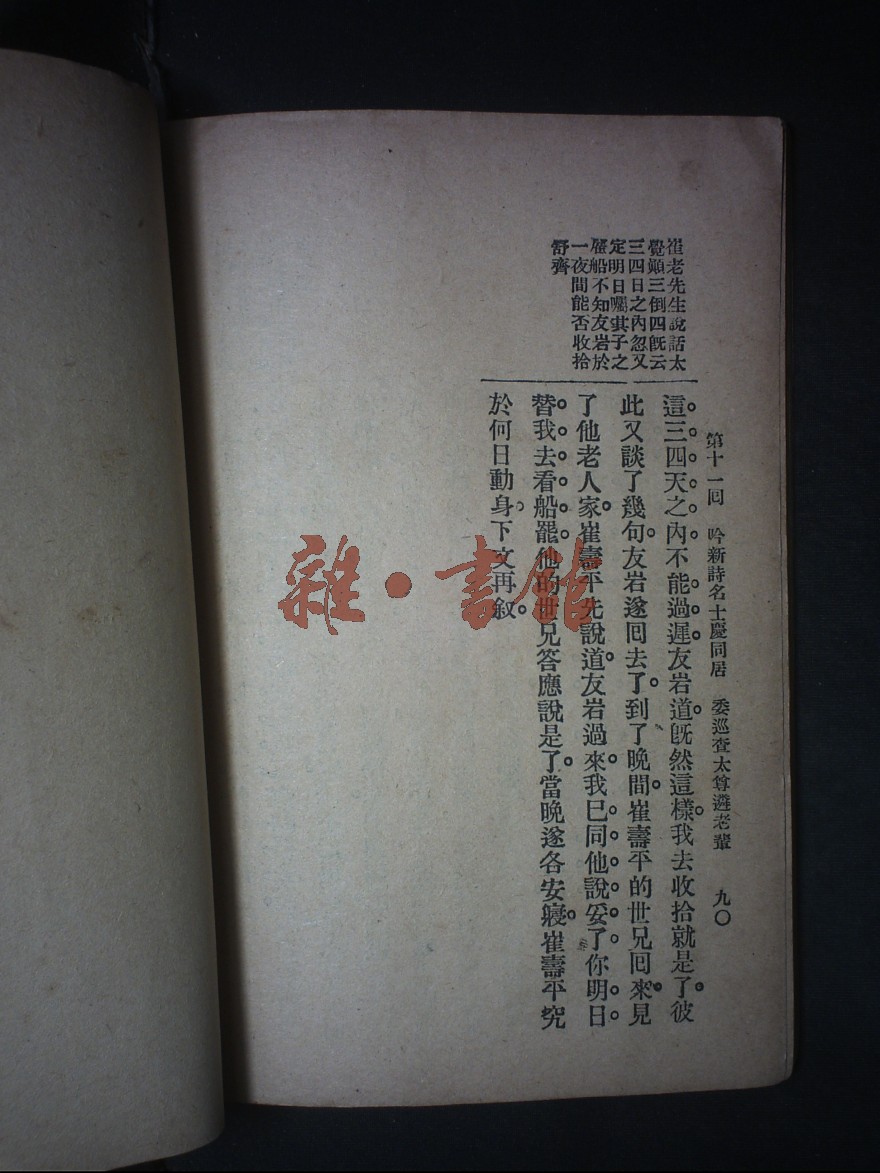 第十一回 吟新詩名士慶同居 委巡查太尊遴老輩 九〇
崔老先生說話太
覺顚三倒四旣云
三四日之內忽又
定明日囑其子之
雇船不知友岩於
一夜間能否收拾
舒齊
這三四天之內不能過遲友岩道旣然這樣我去收拾就是了彼
此又談了幾句友岩遂囘去了到了晚間崔壽平的世兄囘來見
了他老人家崔壽平先說道友岩過來我已同他說妥了你明日
替我去看船罷他的世兄答應說是了當晚遂各安寢崔壽平究
於何日動身下文再叙
雜·書館